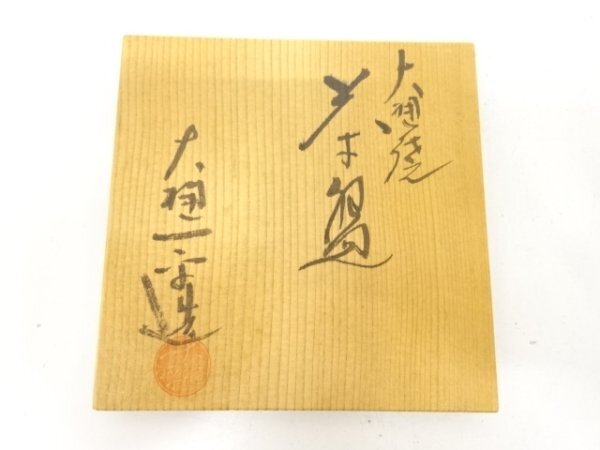 大樋焼
茶盌
大樋一平造